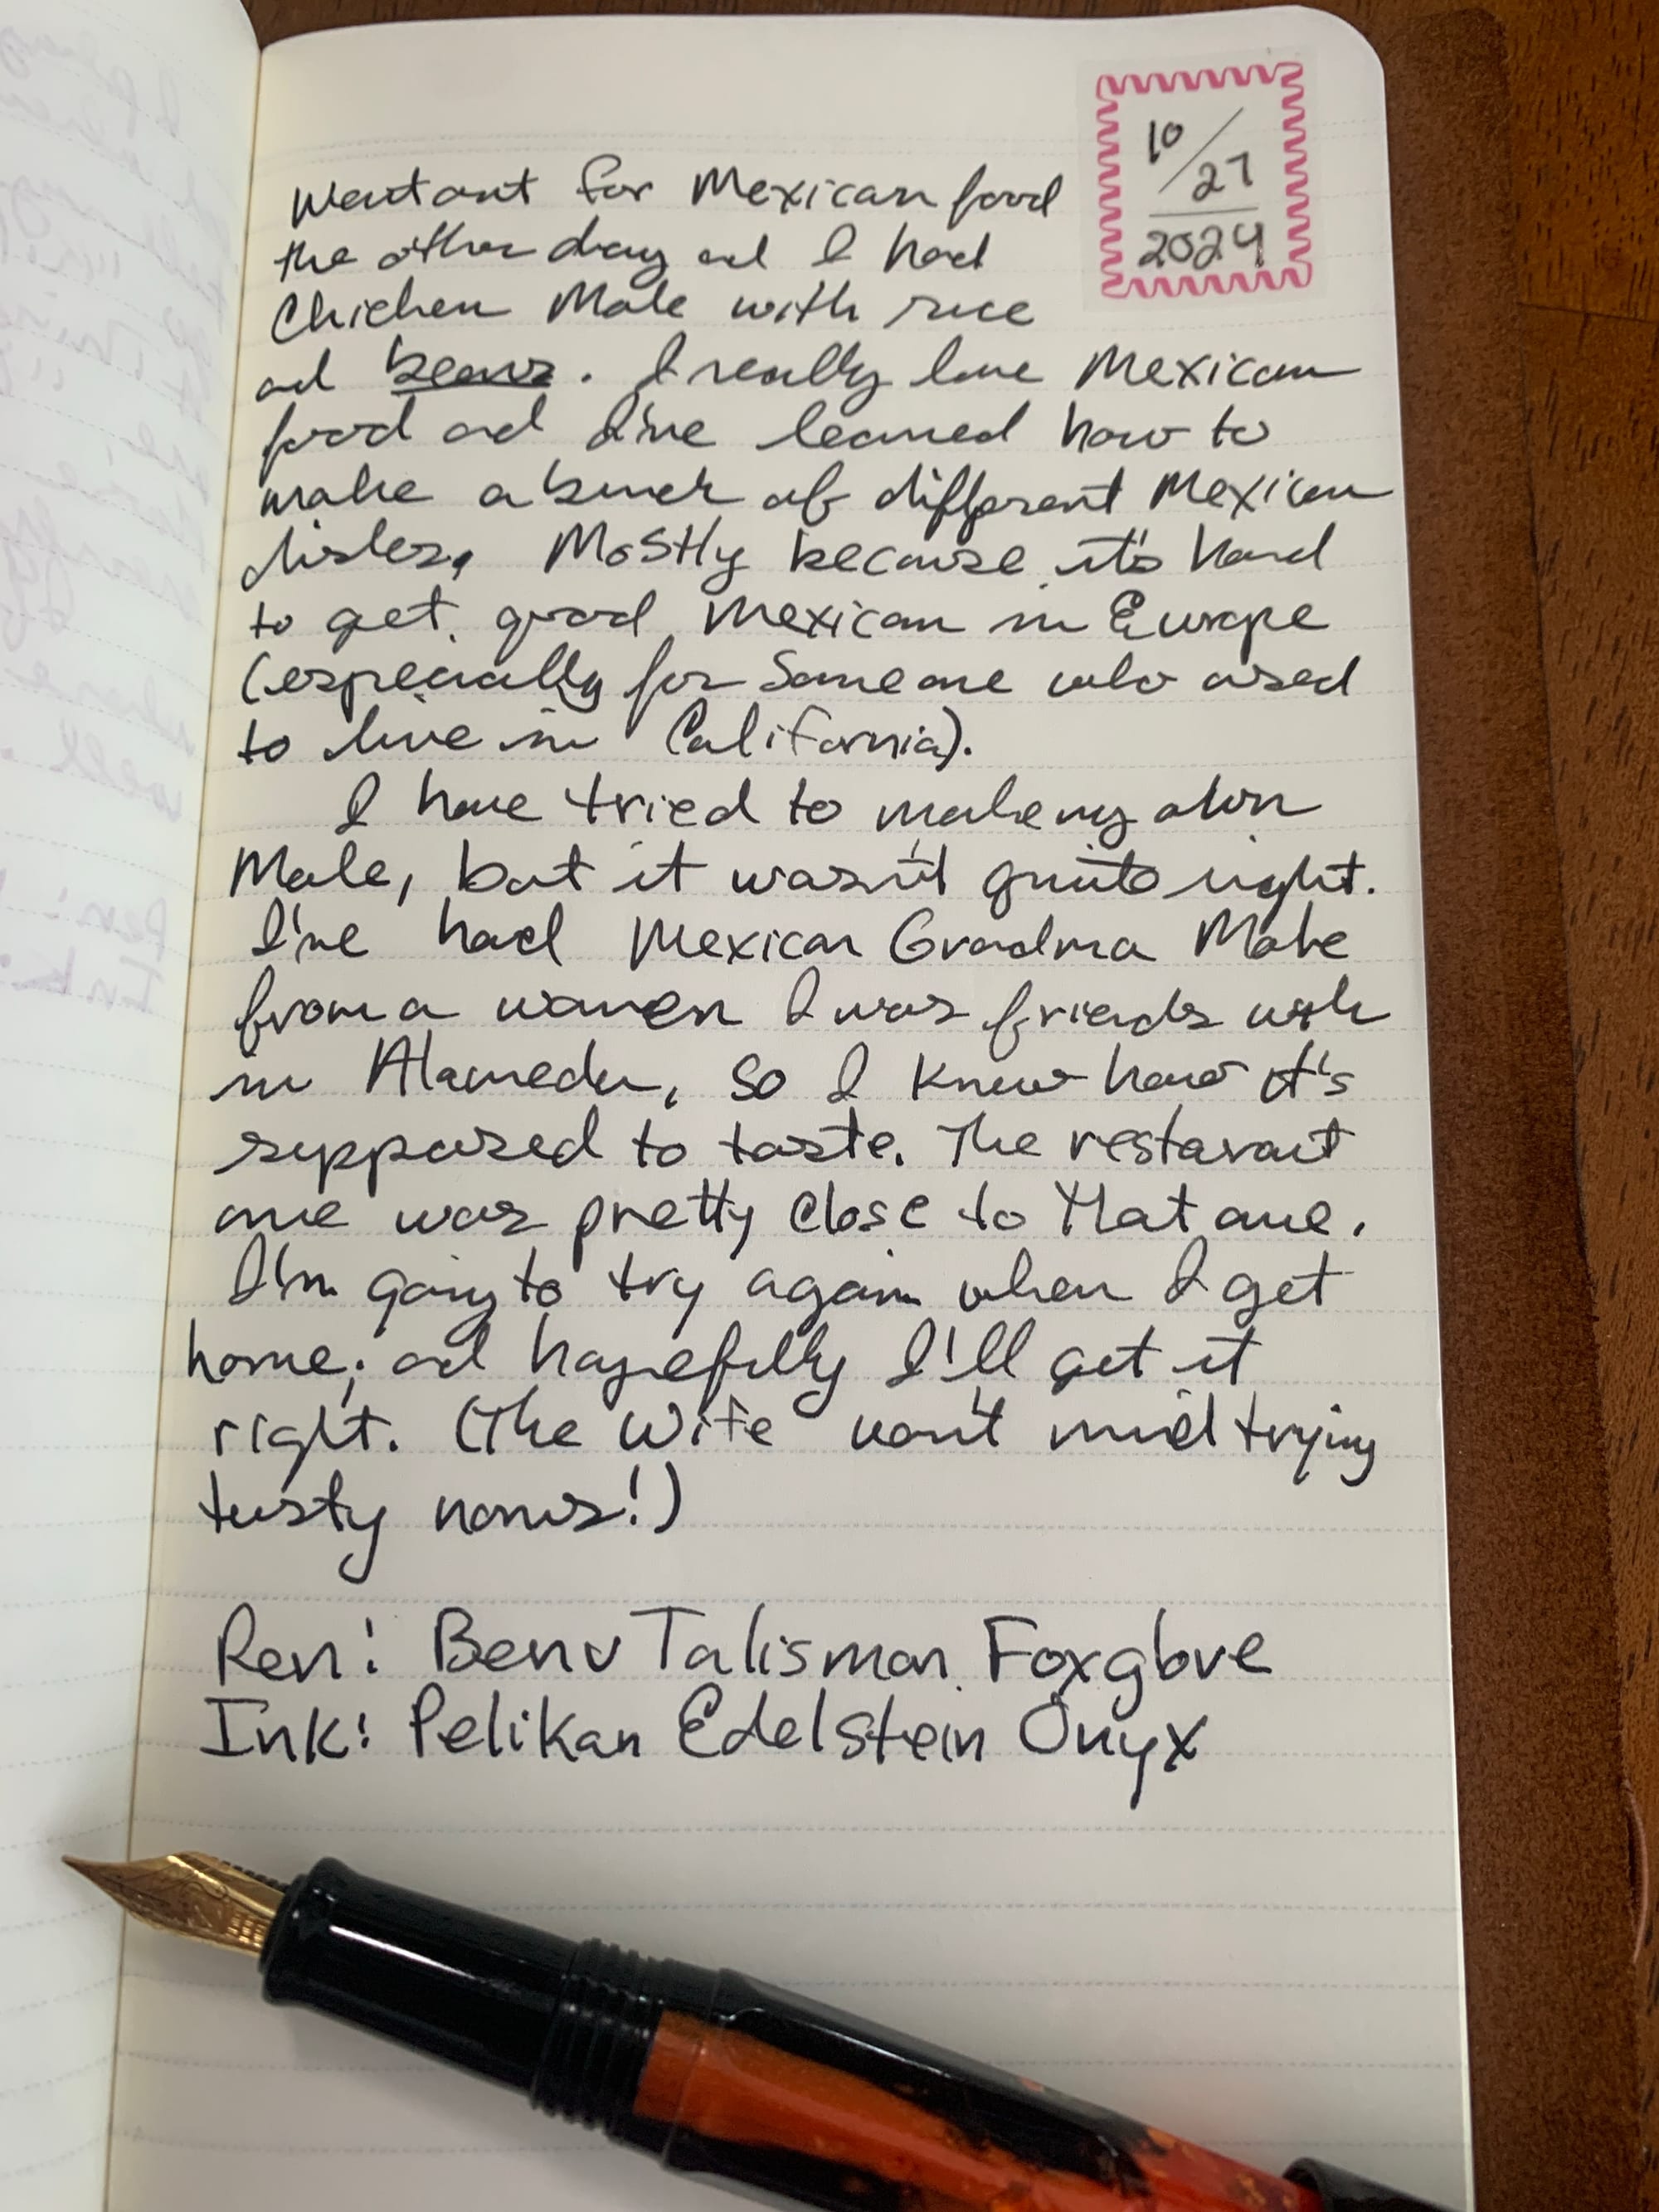 10/27
2024
Went out for Mexican food
the other day and I had
Chicken Mole with rice
and beans. I really love Mexican
food and I've learned how to
make a bunch of different Mexican
dishes. Mostly because it's hard
to get good Mexican in Europe
(especially for someone who used
to live in California).
I have tried to make my own
Mole, but it wasn't quite right.
I've had Mexican Grandma Mole
from a women I was friends with
in Alameda, so I know how it's
supposed to taste. The restaraut
one was pretty close to that one.
I'm going to try again when I get
home; and hopefully I'll get it
right. (The Wife won't mind trying
tasty noms!)
Pen: Benu Talisman Foxglove
Ink: Pelikan Edelstein Onyx
Pen:
Ink: